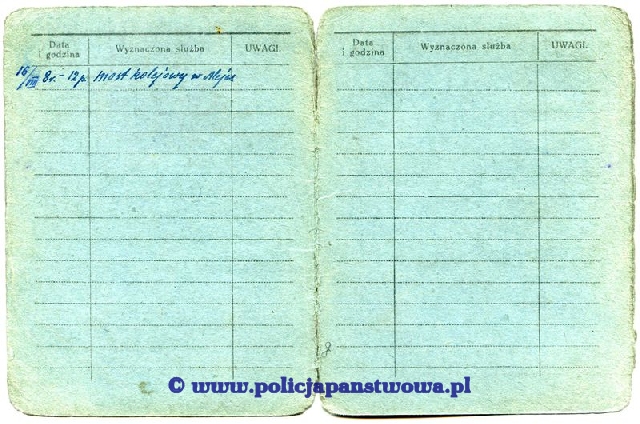 Data i godzina Wyznaczona służba UWAGI.
16/VIII 8r.-12p. most kolejowy w Alejce
Data i godzina Wyznaczona służba UWAGI.
© www.policjapanstwowa.pl